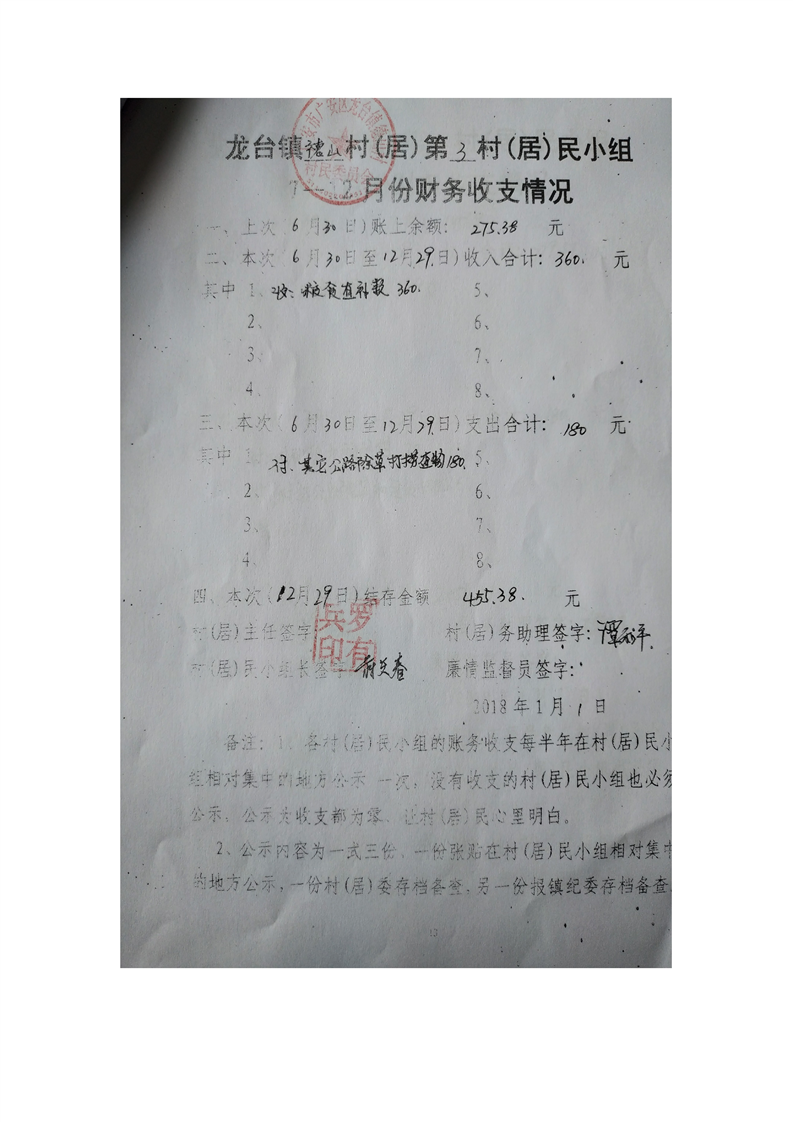 龙台镇德山村(居)第3村(居)民小组
7--12月份财务收支情况
一、上次(6月30日)账上余额：275.38 元
二、本次(6月30日至12月29日)收入合计：360. 元
其中 1、收：粮食直补款 360. 5、
2、 6、
3、 7、
4、 8、
三、本次(6月30日至12月29日)支出合计：180 元
其中 1、付：其它公路除草打捞 180. 5、
2、 6、
3、 7、
4、 8、
四、本次(12月29日)结存金额 455.38. 元
村(居)主任签字 罗有兵印 村(居)务助理签字：
村(居)民小组长签字 廉情监督员签字：
2018年1月1日
备注：1、各村(居)民小组的账务收支每半年在村(居)民小
组相对集中的地方公示一次，没有收支的村(居)民小组也必须
公示，公示为收支都为零，让村(居)民心里明白。
2、公示内容为一式三份，一份张贴在村(居)民小组相对集中
的地方公示，一份村(居)委存档备查，另一份报镇纪委存档备查。